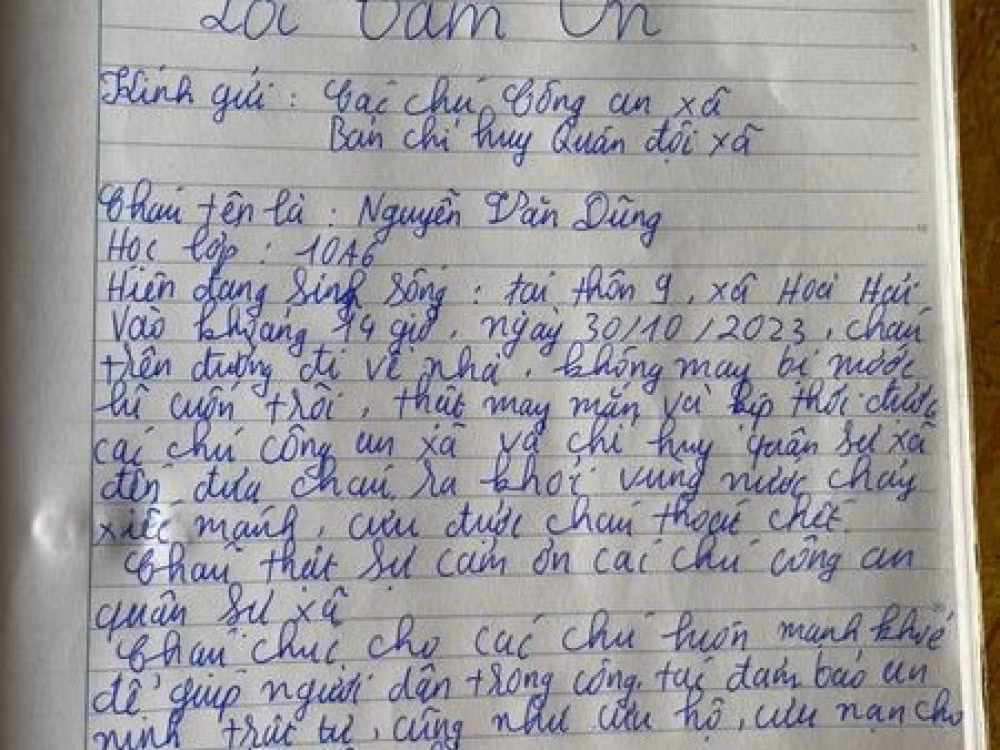 Lời Cảm Ơn
Kính gửi : Các chú Công an xã
Ban chỉ huy Quân đội xã
Cháu tên là : Nguyễn Văn Dũng
Học lớp : 10A6
Hiện đang sinh sống : tại thôn 9, xã Hoài Hải
Vào khoảng 14 giờ, ngày 30/10/2023, cháu
trên đường đi về nhà, không may bị nước
lũ cuốn trôi, thật may mắn và kịp thời được
các chú công an xã và chỉ huy quân sự xã
đến đưa cháu ra khỏi vùng nước chảy
xiếc mạnh, cứu được cháu thoát chết.
Cháu thật sự cảm ơn các chú công an
quân sự xã
Cháu chúc cho các chú luôn mạnh khỏe
để giúp người dân trong công tác đảm bảo an
ninh trật tự, cũng như cứu hộ, cứu nạn cho